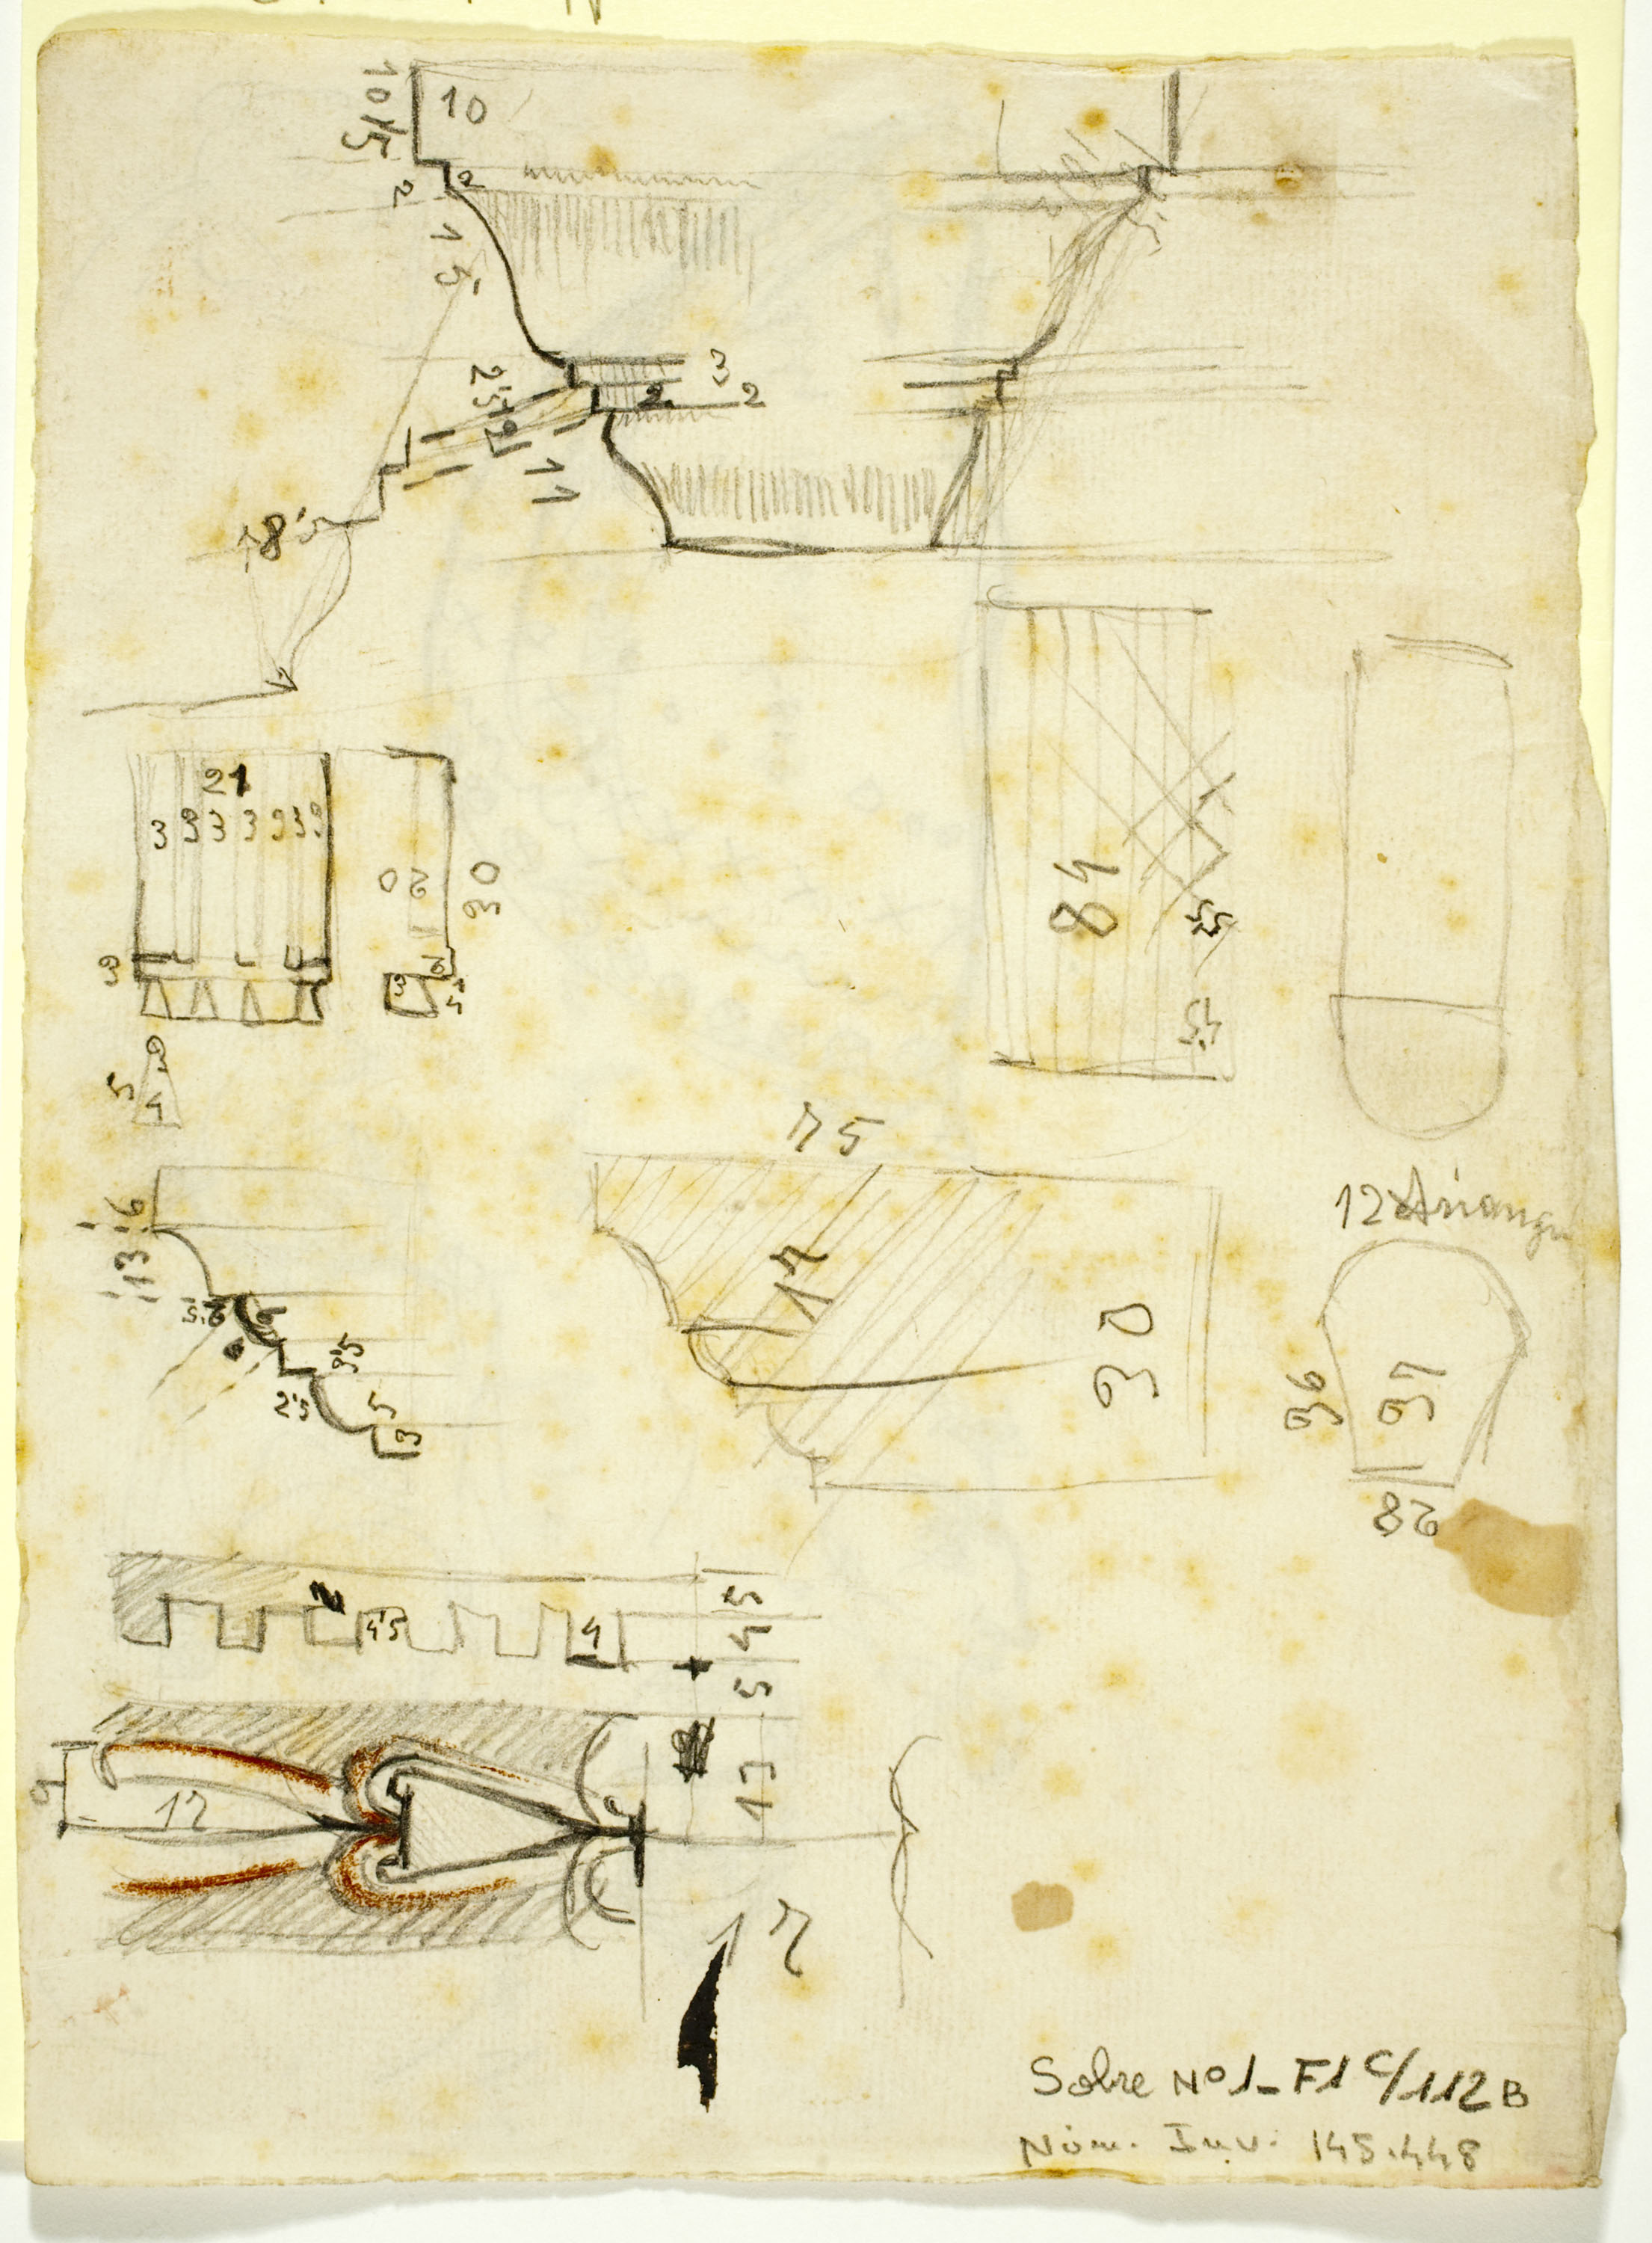 10
10'5
2
2
15
3
2'5
2
2
11
18'5
21
3 3 3 3 3 3
20
30
3
2
3
4
3
5
4
84
4'5
75
12
6
13
17
30
36
37
28
2'5
3'5
5
3
5
4'5
4
4
5
9
17
13
17
Sobre Nº 1- F1 C/112 B
Núm. Inv. 145.448